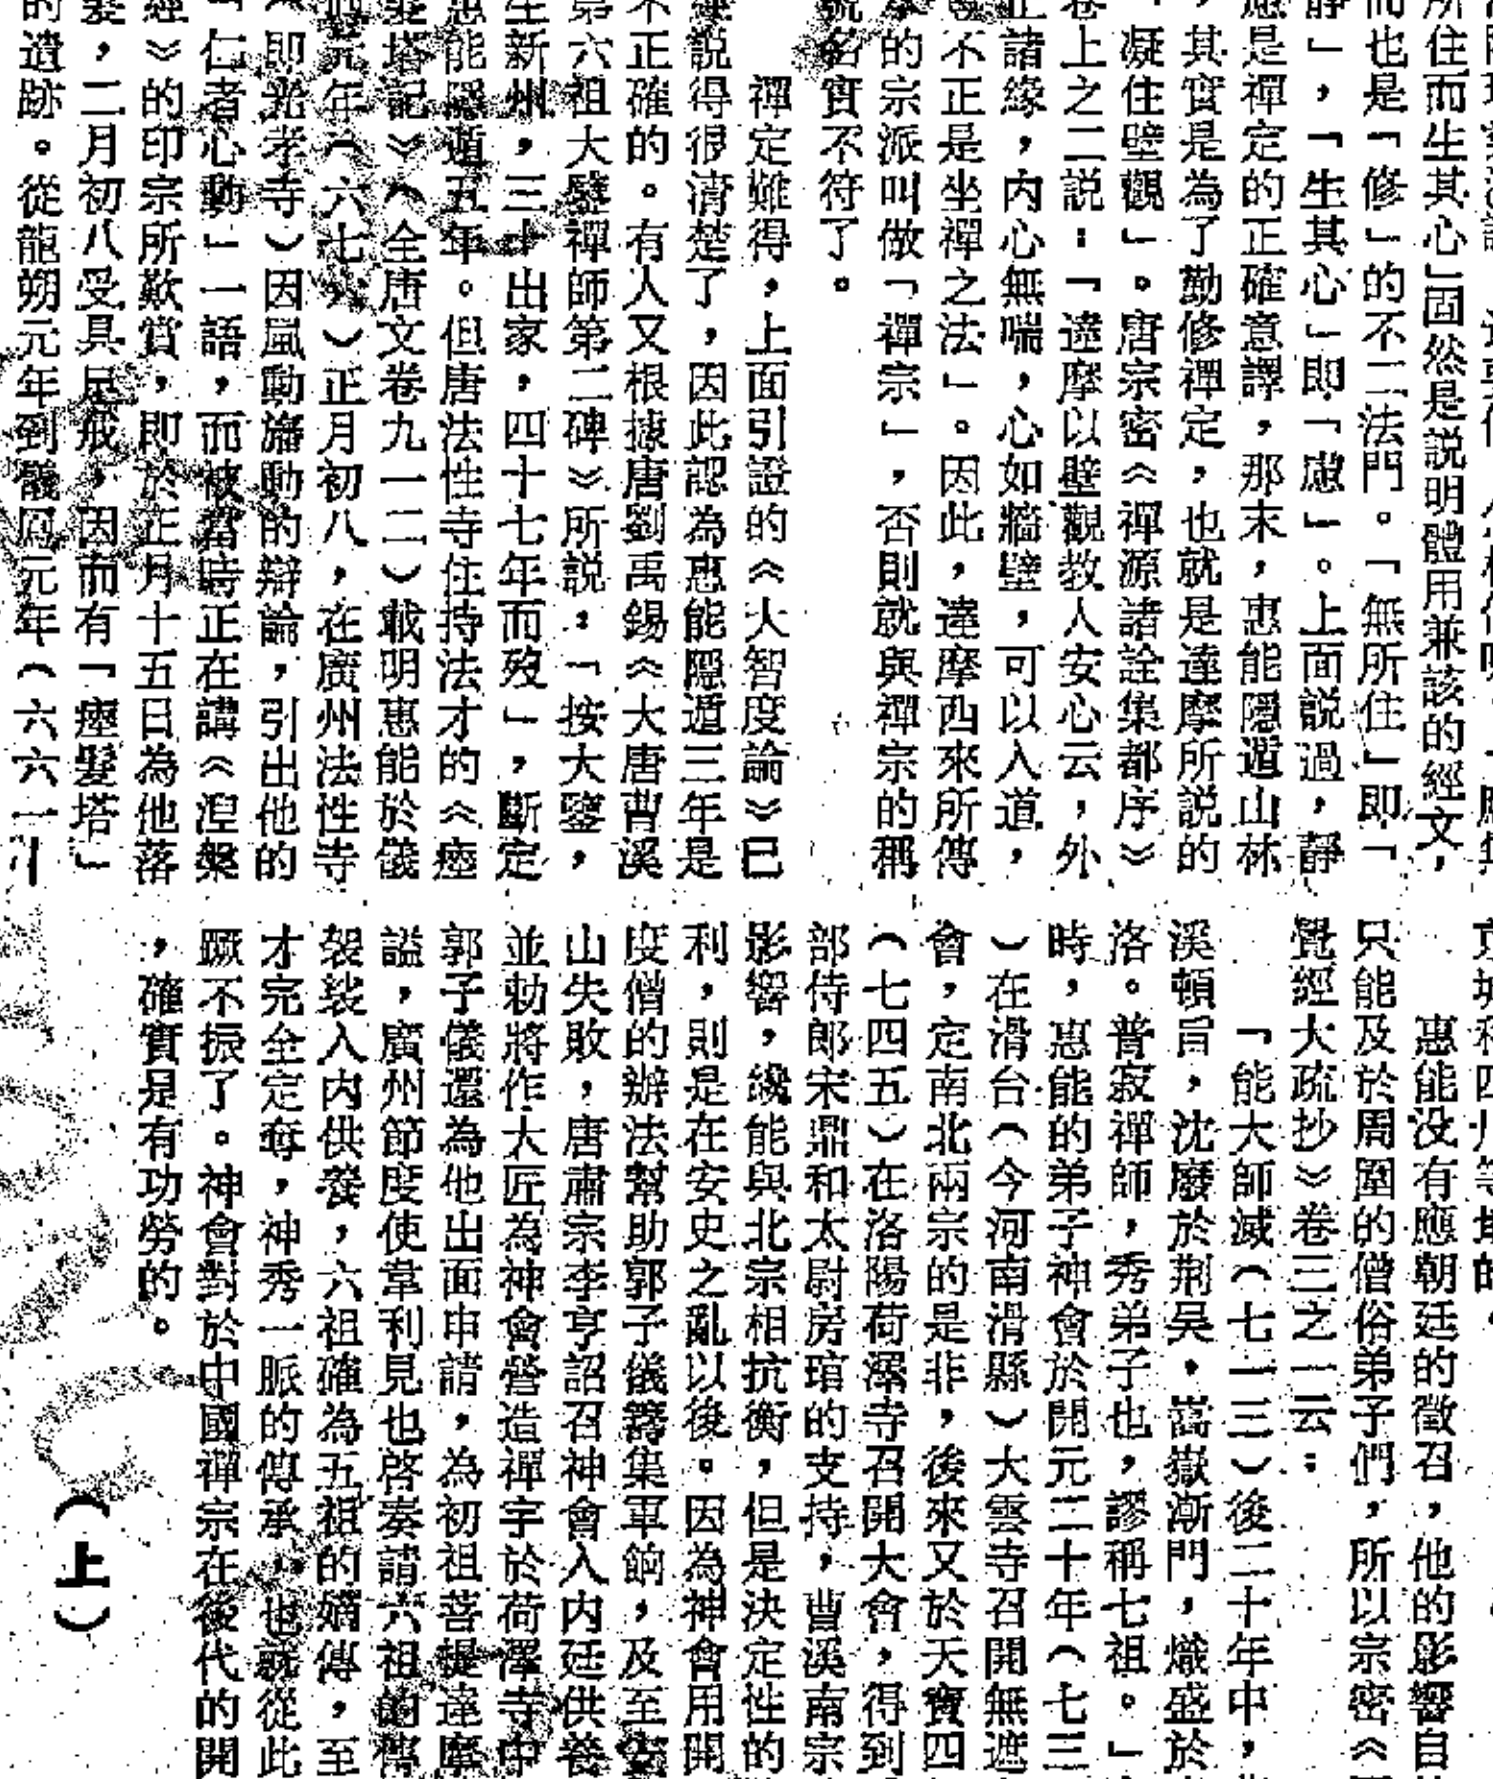 所住而生其心」固然是説明體用兼該的經文，
而也是「修」的不二法門。「無所住」即「
靜」，「生其心」即「慮」。上面説過，靜
應是禪定的正確意譯，那末，惠能隱遁山林
，其實是為了勤修禪定，也就是達摩所説的
「凝住壁觀」。唐宗密《禪源諸詮集都序》
卷上之二説：「達摩以壁觀教人安心云，外
止諸緣，內心無喘，心如牆壁，可以入道，
不正是坐禪之法」。因此，達摩西來所傳
的宗派叫做「禪宗」，否則就與禪宗的稱
號名實不符了。
禪定難得，上面引證的《大智度論》已
説得很清楚了，因此認為惠能隱遁三年是
不正確的。有人又根據唐劉禹錫《大唐曹溪
第六祖大鑒禪師第二碑》所説：「按大鑒，
生新州，三十出家，四十七年而歿」，斷定
惠能隱遁五年。但唐法性寺住持法才的《瘞
髮塔記》（全唐文卷九一二）載明惠能於儀
鳳元年（六七六）正月初八，在廣州法性寺
（即光孝寺）因風動旛動的辯論，引出他的
「仁者心動」一語，而被當時正在講《涅槃
經》的印宗所歎賞，即於正月十五日為他落
髮，二月初八受具足戒，因而有「瘞髮塔」
的遺跡。從龍朔元年到儀鳳元年（六六一—
京城和四川等地的。
惠能没有應朝廷的徵召，他的影響自
只能及於周圍的僧俗弟子們，所以宗密《
覺經大疏抄》卷三之一云：
「能大師滅（七一三）後二十年中，
溪頓旨，沈廢於荆吴，嵩嶽漸門，熾盛於
洛。普寂禪師，秀弟子也，謬稱七祖。」
時，惠能的弟子神會於開元二十年（七三
）在滑台（今河南滑縣）大雲寺召開無遮
會，定南北兩宗的是非，後來又於天寶四
（七四五）在洛陽荷澤寺召開大會，得到
部侍郎宋鼎和太尉房琯的支持，曹溪南宗
影響，纔能與北宗相抗衡，但是決定性的
利，則是在安史之亂以後。因為神會用開
度僧的辦法幫助郭子儀籌集軍餉，及至安
山失敗，唐肅宗李亨詔召神會入内廷供養
並勅將作大匠為神會營造禪宇於荷澤寺中
郭子儀還為他出面申請，為初祖菩提達摩
謚，廣州節度使韋利見也啓奏請六祖的傳
袈裟入内供養，六祖確為五祖的嫡傳，至
才完全定奪，神秀一脈的傳承，也就從此
蹶不振了。神會對於中國禪宗在後代的開
，確實是有功勞的。
（上）